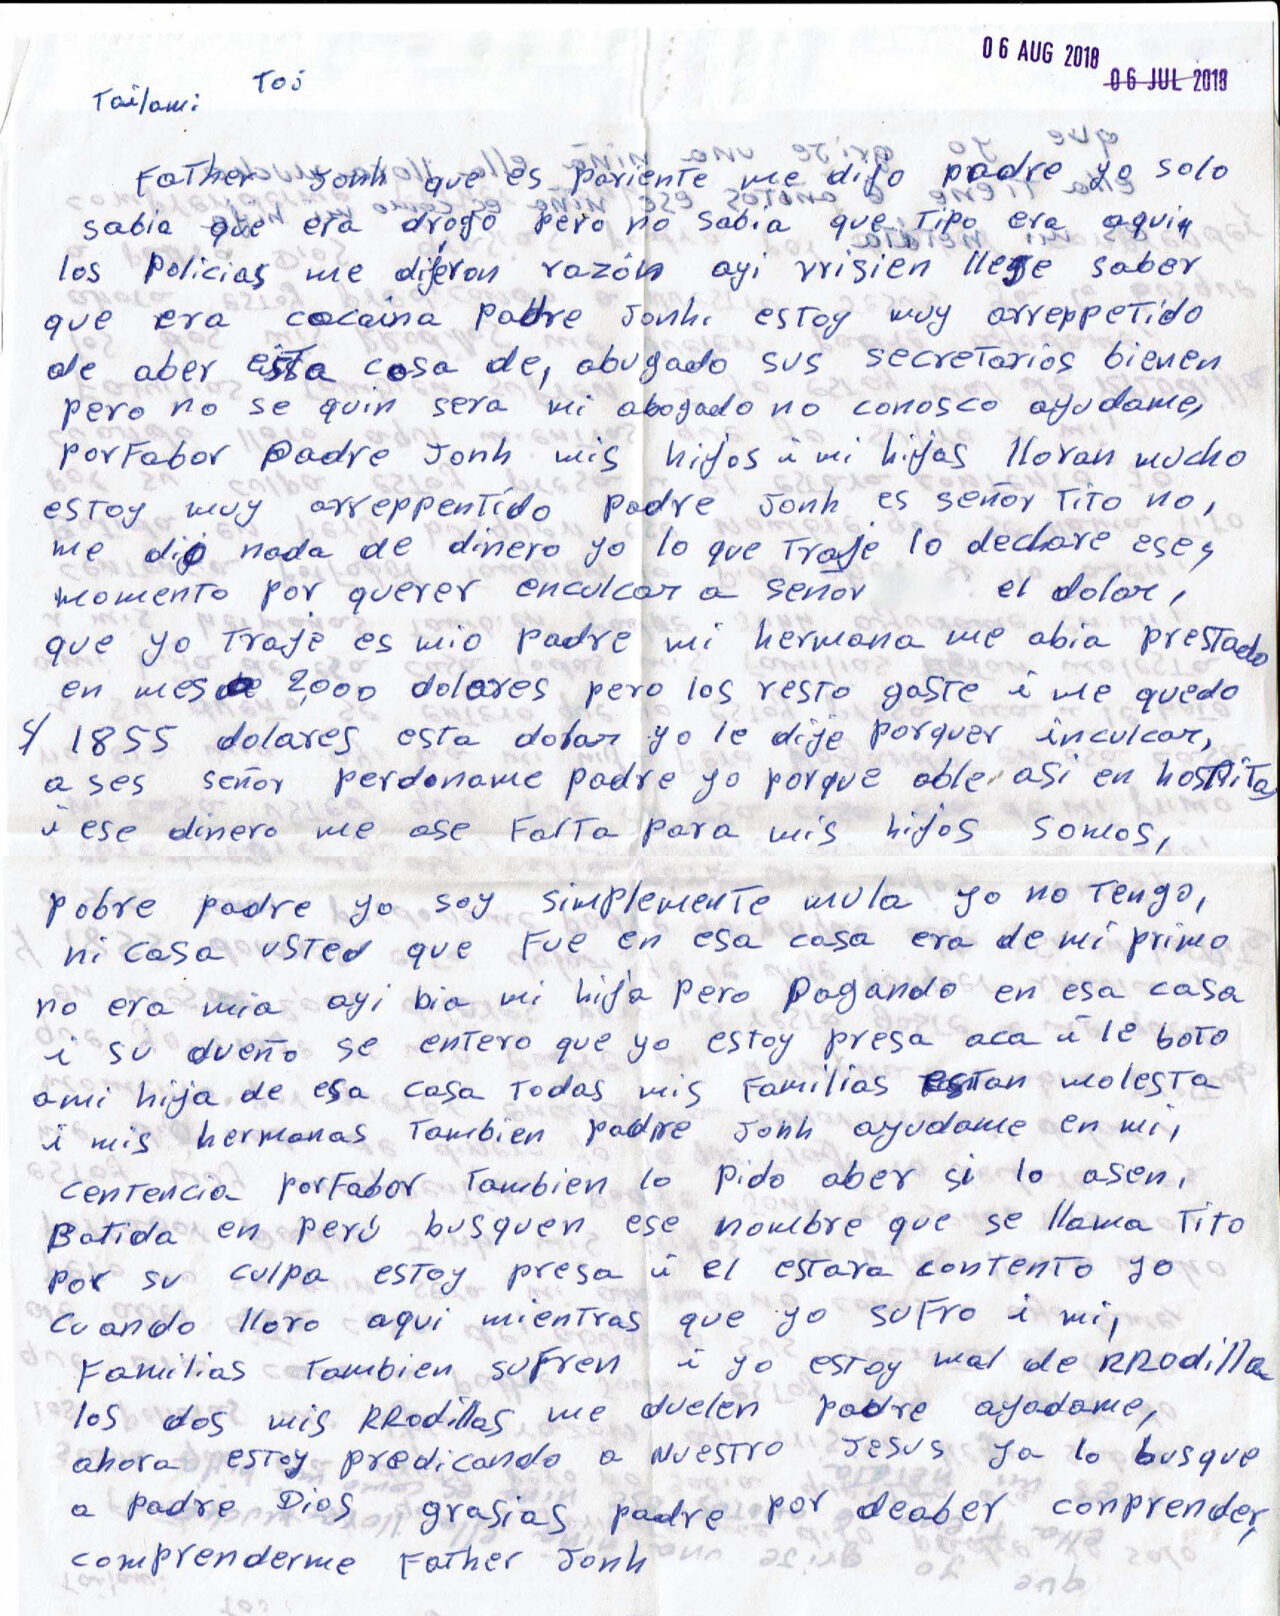 06 AUG 2018
06 JUL 2018
Toi
Tailami
Father Jonh que es pariente me dijo padre yo solo
sabia que era drogo pero no sabia que tipo era aquin
los policias me dijeron razón ayi rrisien llege saber
que era cocaina padre Jonhi estoy muy arreppetido
de aber esta cosa de, abugado sus secretarios bienen
pero no se quin sera mi abogado no conosco ayudame,
porfabor padre Jonh mis hijos i mi hijas lloran mucho
estoy muy arreppentido padre Jonh es señor Tito no,
me dio nada de dinero yo lo que traje lo declare ese,
momento por querer enculcar a señor el dolar,
que yo traje es mio padre mi hermana me abia prestado
en mes de 2,000 dolares pero los resto gaste i me quedo
s/ 1855 dolares esta dolar yo le dije porquer inculcar,
a ses señor perdoname padre yo porque able asi en hostita
i ese dinero me ase falta para mis hijos somos,
pobre padre yo soy simplemente mula yo no tengo,
ni casa usted que fue en esa casa era de mi primo
no era mia ayi bia mi hija pero pagando en esa casa
i su dueño se entero que yo estoy presa aca i le boto
ami hija de esa casa todas mis familias estan molesta
i mis hermanas tambien padre Jonh ayudame en mi,
centencia porfabor tambien lo pido aber si lo asen,
Batida en perú busquen ese nombre que se llama Tito
por su culpa estoy presa i el estara contento yo
cuando lloro aqui mientras que yo sufro i mi,
familias tambien sufren i yo estoy mal de RRodilla
los dos mis RRodillas me duelen padre ayadame,
ahora estoy predicando a nuestro Jesus ya lo busque
a padre Dios grasias padre por deaber conprender,
comprenderme Father Jonh